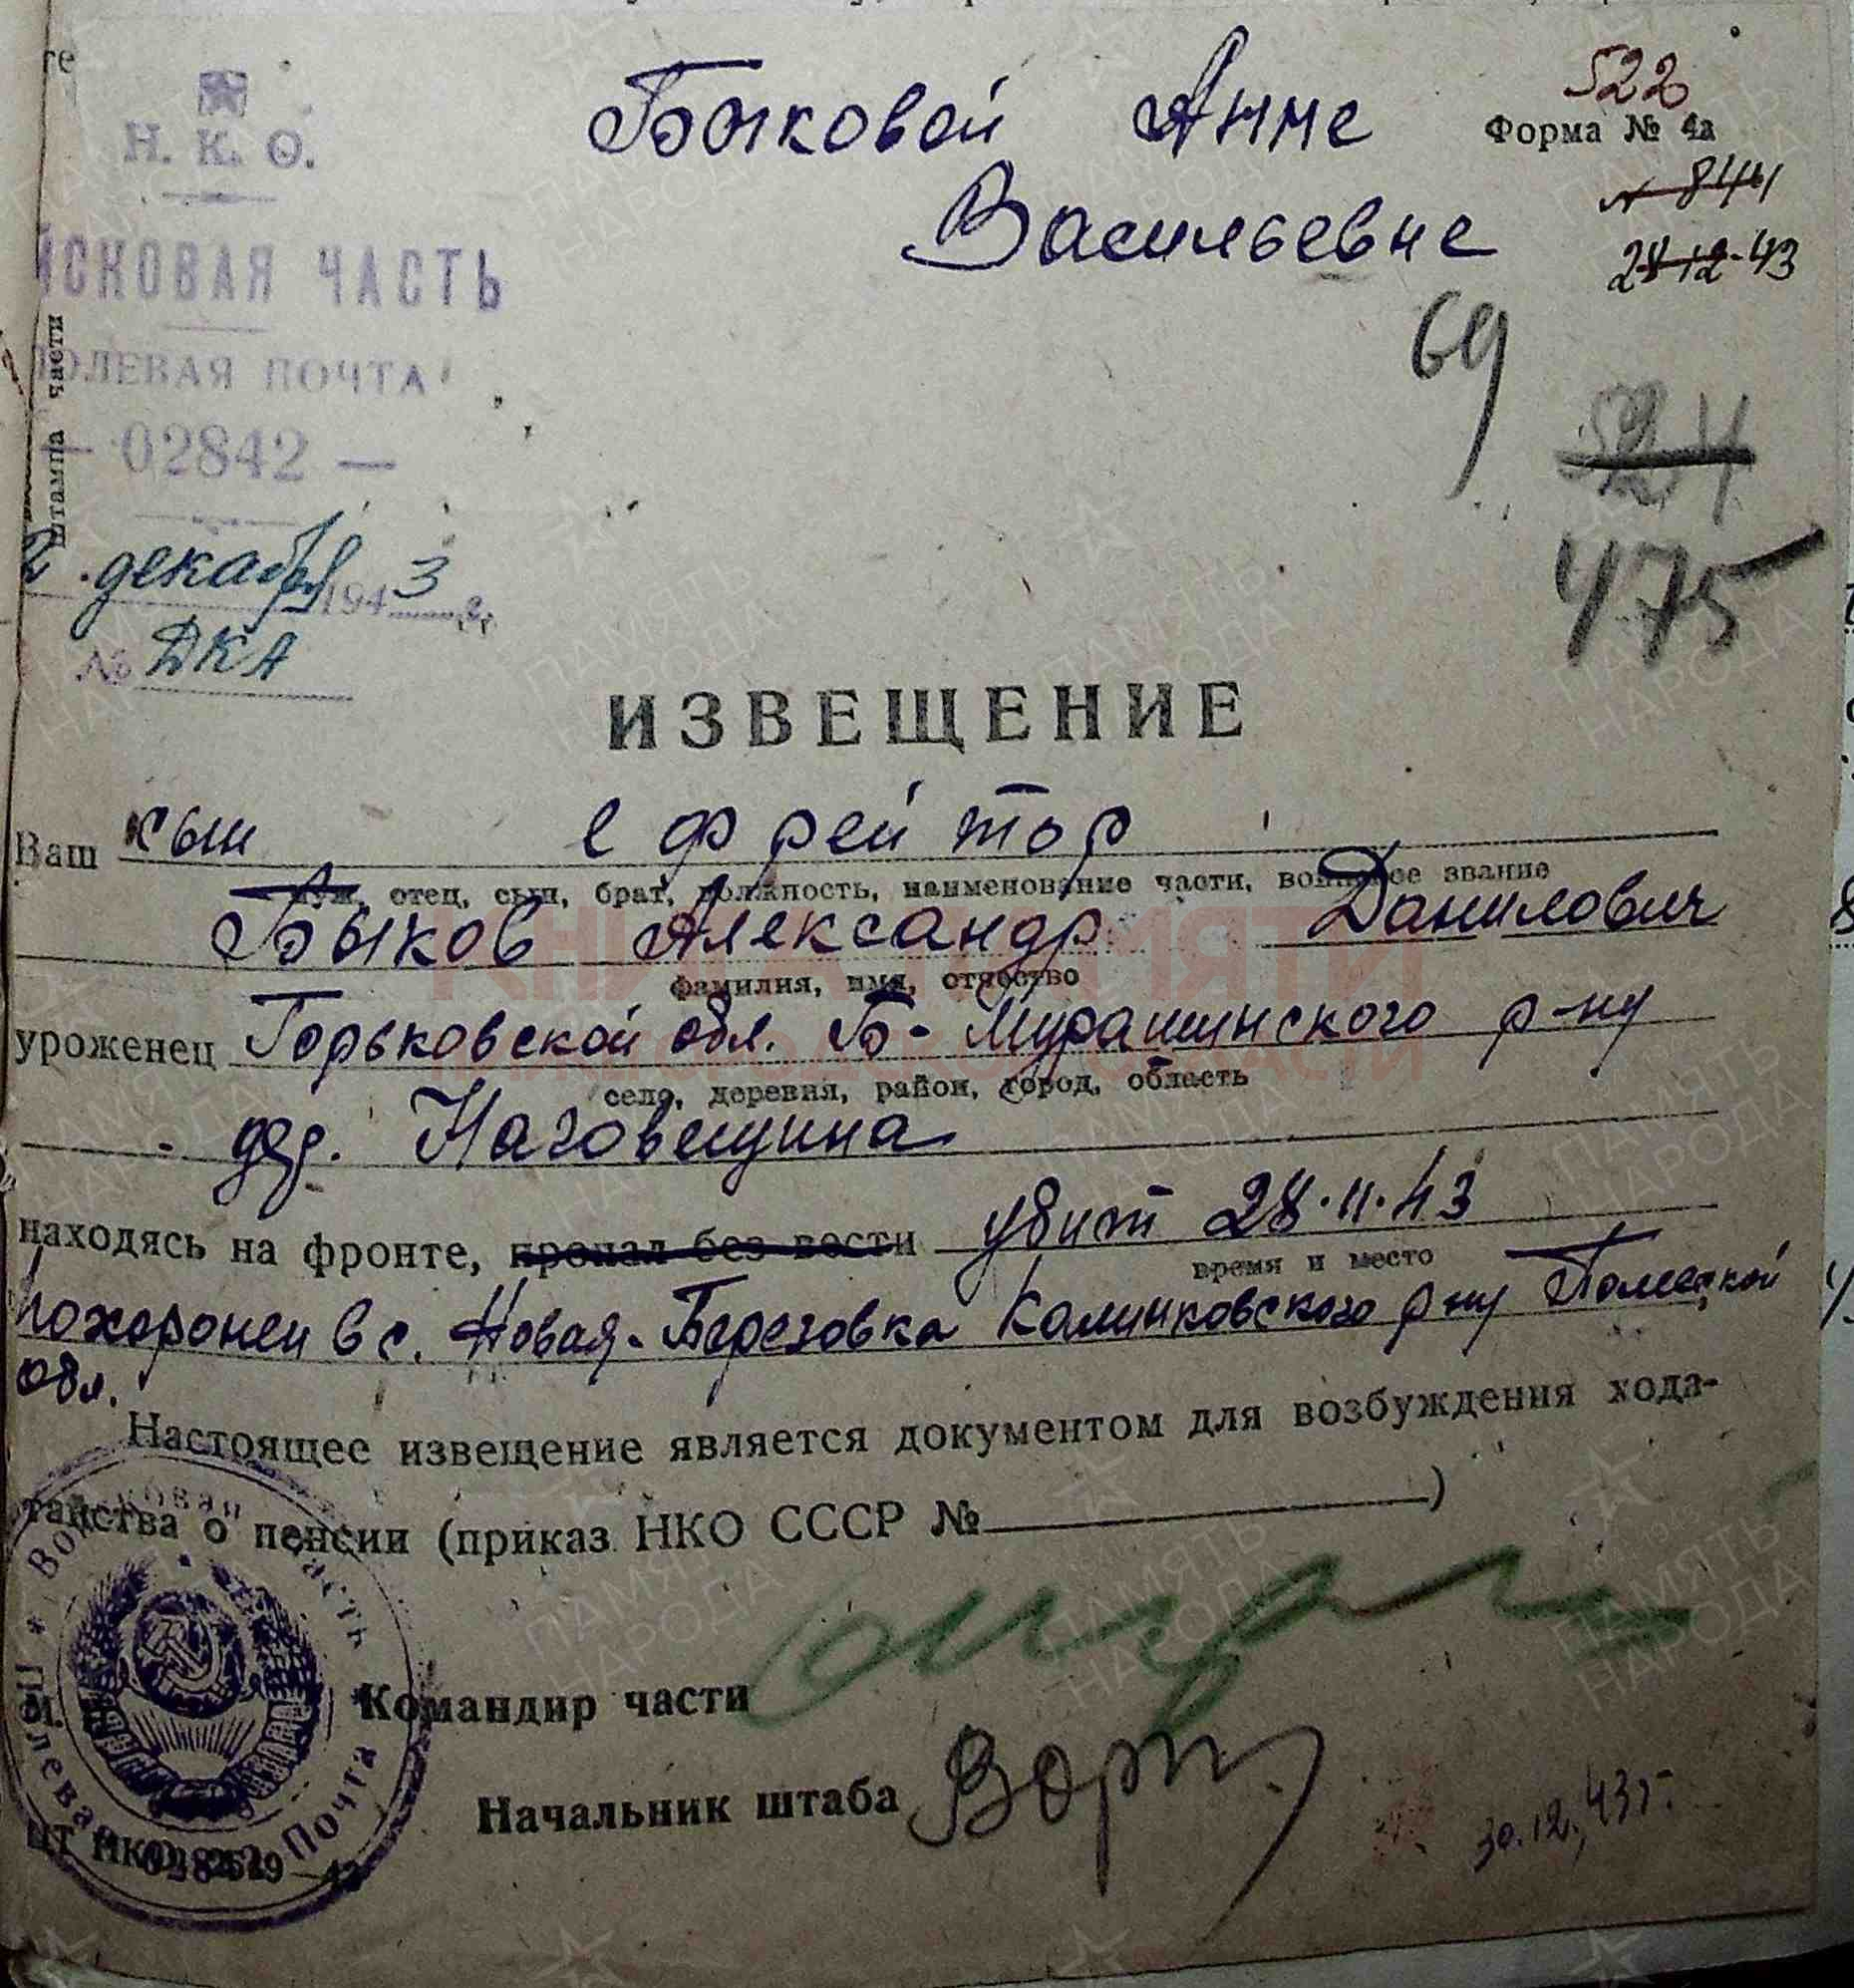 Н. К. О.
Быковой Анне
522
Форма № 4а
Васильевне
№ 844
28-12-43
ЙСКОВАЯ ЧАСТЬ
ПОЛЕВАЯ ПОЧТА
— 02842 —
штампа части
69
475
2. декабря 1943 г.
№ ДКА
ИЗВЕЩЕНИЕ
Ваш сын ефрейтор
муж, отец, сын, брат, должность, наименование части, воинское звание
Быков Александр Данилович
фамилия, имя, отчество
уроженец Горьковской обл. Б-Мурашинского р-ну
село, деревня, район, город, область
дер. Наговицина
находясь на фронте, пропал без вести убит 28.11.43
время и место
похоронен в с. Новая-Березовка Калинковского р-ну Полесской
обл.
Настоящее извещение является документом для возбуждения хода-
тайства о пенсии (приказ НКО СССР № )
Войсковая часть
Полевая Почта
М.
Командир части
Начальник штаба
30.12.43г.
КНИГА ПАМЯТИ
НИЖЕГОРОДСКОЙ ОБЛАСТИ
ПАМЯТЬ
НАРОДА